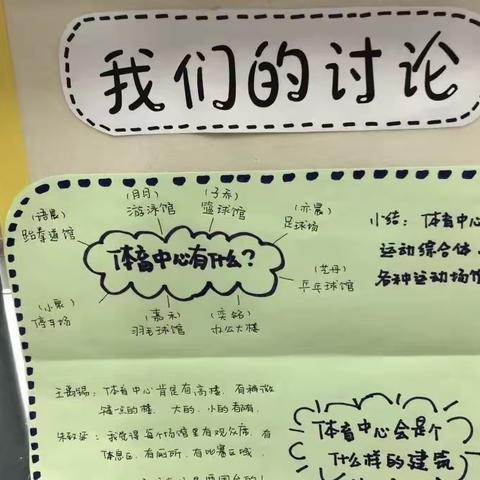 我们的讨论
(月月)
游泳馆
(子乔)
篮球馆
(亦晨)
足球场
(语晨)
跆拳道馆
体育中心有什么?
(芝毋)
乒乓球馆
(小宸)
停车场
(嘉禾)
羽毛球馆
(奕铭)
办公大楼
小结: 体育中心
运动综合体
各种运动场馆
体育中心肯定有高楼, 有稍微
矮一点的楼. 大的. 小的都有.
我觉得每个场馆里有观众席, 有
休息区, 有厕所, 有比赛区域.
体育中心会是个
什么样的建筑